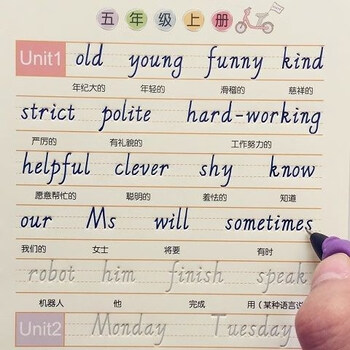 五年级上册
Unit1 old young funny kind
年纪大的 年轻的 滑稽的 慈祥的
strict polite hard-working
严厉的 有礼貌的 工作努力的
helpful clever shy know
愿意帮忙的 聪明的 羞怯的 知道
our Ms will sometimes
我们的 女士 将要 有时
robot him finish speak
机器人 他 完成 用（某种语言）
Unit2 Monday Tuesday